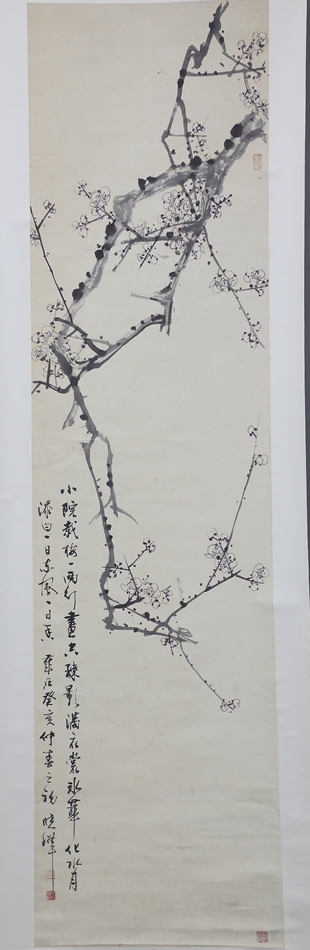 小院栽梅一兩行畫空疎影滿衣裳冰華化水月
添白一日東風一日香 癸亥仲春之